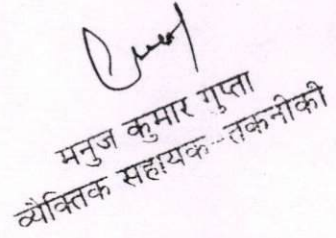 मनुज कुमार गुप्ता
व्यैक्तिक सहायक--तकनीकी